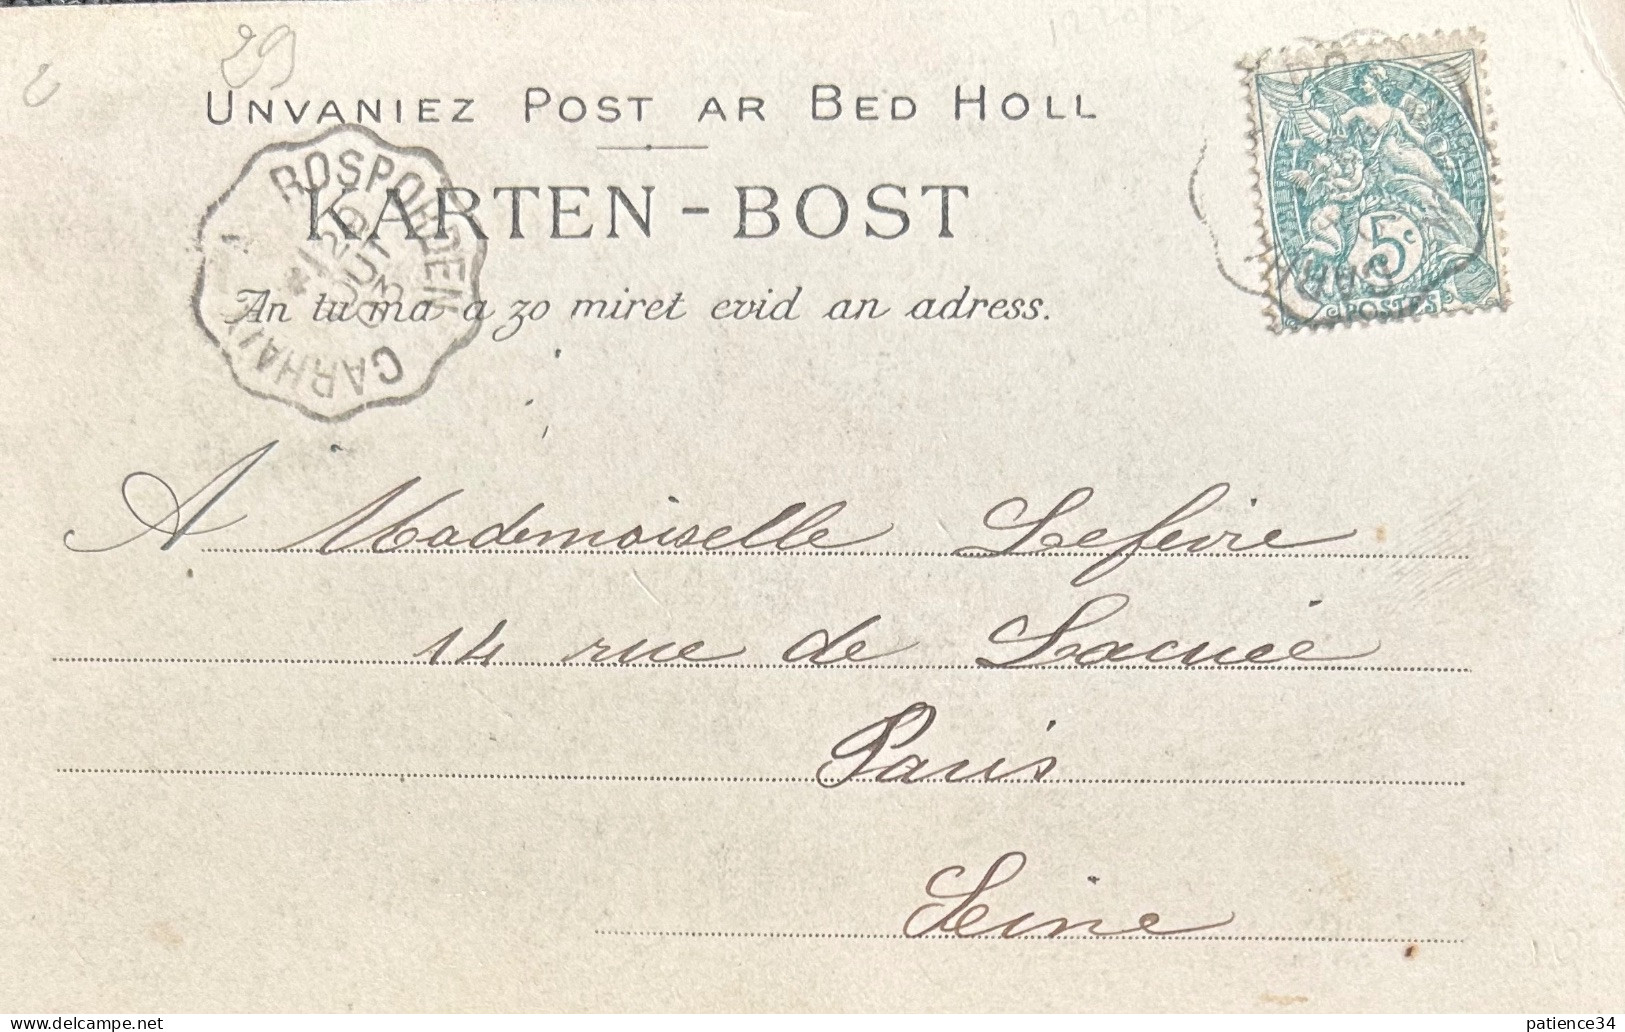 29
UNVANIEZ POST AR BED HOLL
KARTEN-BOST
An tu ma a zo miret evid an adress.
ROSPORDEN
29
OUT
03
CARHAIX
5c
POSTES
A Mademoiselle Lefevre
14 rue de Lacuée
Paris
Seine
delcampe.net
patience34